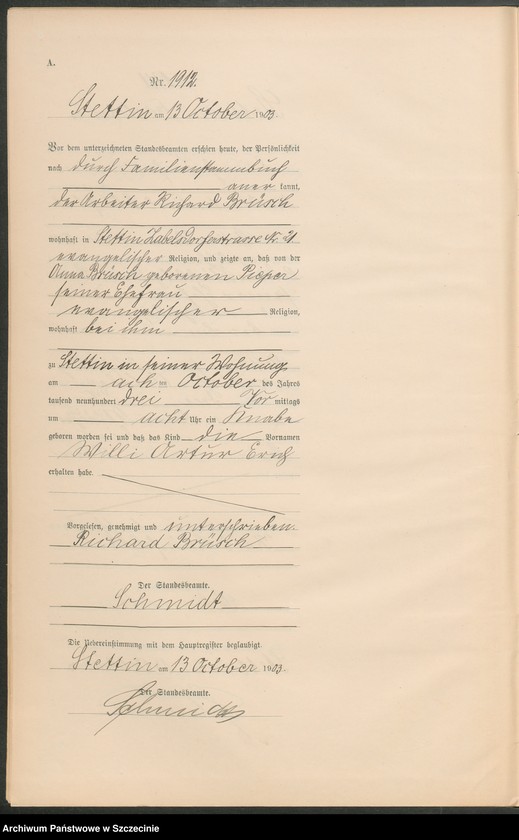 A.
Nr. 1912.
Stettin am 13 October 1903.
Vor dem unterzeichneten Standesbeamten erschien heute, der Persönlichkeit
nach durch Familienstammbuch
aner kannt,
der Arbeiter Richard Brüsch
wohnhaft in Stettin Zabelsdorferstrasse Nr. 21
evangelischer Religion, und zeigte an, daß von der
Anna Brüsch geborenen Pieper
seiner Ehefrau
evangelischer Religion,
wohnhaft bei ihm
zu Stettin in seiner Wohnung
am October des Jahres
tausend neunhundert drei Vor mittags
um acht Uhr ein Knabe
geboren worden sei und daß das Kind die Vornamen
Willi Artur Erich
erhalten habe.
Vorgelesen, genehmigt und unterschrieben.
Richard Brüsch
Der Standesbeamte.
Schmidt
Die Uebereinstimmung mit dem Hauptregister beglaubigt.
Stettin am 13 October 1903.
Der Standesbeamte.
Schmidt
Archiwum Państwowe w Szczecinie